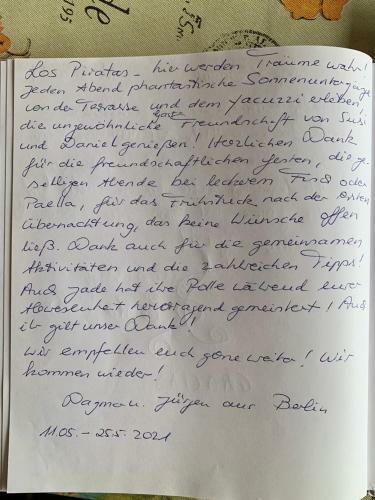 Los Piratas - hier werden Träume wahr!
Jeden Abend phantastische Sonnenuntergänge
von der Terasse und dem Yacuzzi erleben,
die ungewöhnliche Gastfreundschaft von Susi
und Daniel genießen! Herzlichen Dank
für die freundschaftlichen Gesten, die ge-
selligen Abende bei leckerem Fisch oder
Paella, für das Frühstück nach der ersten
Übernachtung, das keine Wünsche offen
ließ. Dank auch für die gemeinsamen
Aktivitäten und die zahlreichen Tipps!
Auch Jade hat ihre Rolle während eurer
Abwesenheit hervorragend gemeistert! Auch
ihr gilt unser Dank!
Wir empfehlen euch gerne weiter! Wir
kommen wieder!
Dagmar u. Jürgen aus Berlin
11.05. - 25.5. 2021